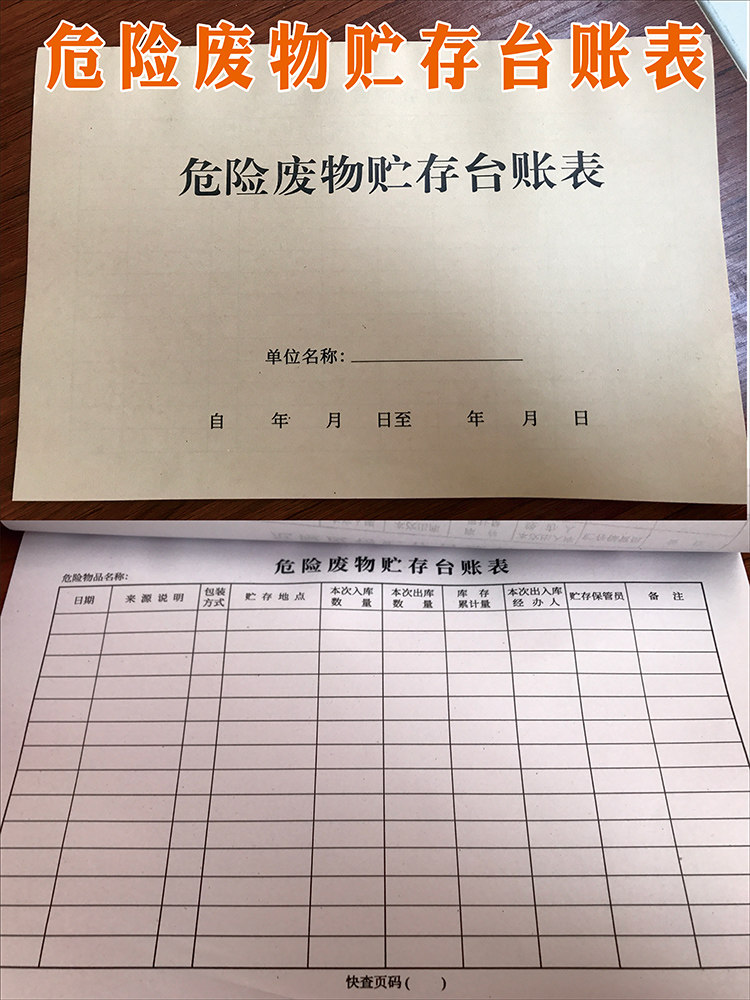 危险废物贮存台账表
危险废物贮存台账表
单位名称：
自 年 月 日至 年 月 日
危险废物贮存台账表
危险物品名称：
日期 来源说明 包装方式 贮存地点 本次入库数量 本次出库数量 库存累计量 本次出入库经办人 贮存保管员 备注
快查页码( )